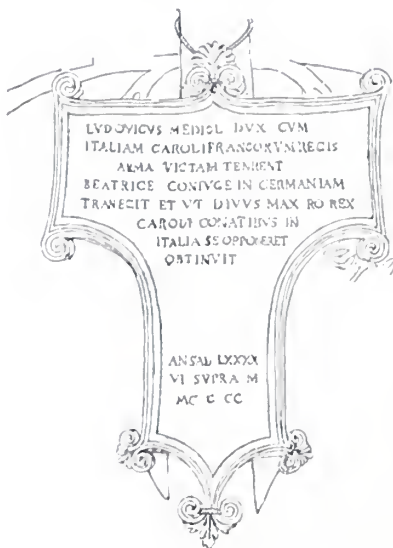 LVDOVICVS MEDIOL DVX CVM
ITALIAM CAROLI FRANCORVM REGIS
ARMA VICTAM TENRENT
BEATRICE CONIVGE IN GERMANIAM
TRANEGIT ET VT DIVVS MAX RO REX
CAROLI CONATIBVS IN
ITALIA SE OPPONERET
OBTINVIT
AN SAL LXXXX
VI SVPRA M
MC C CC